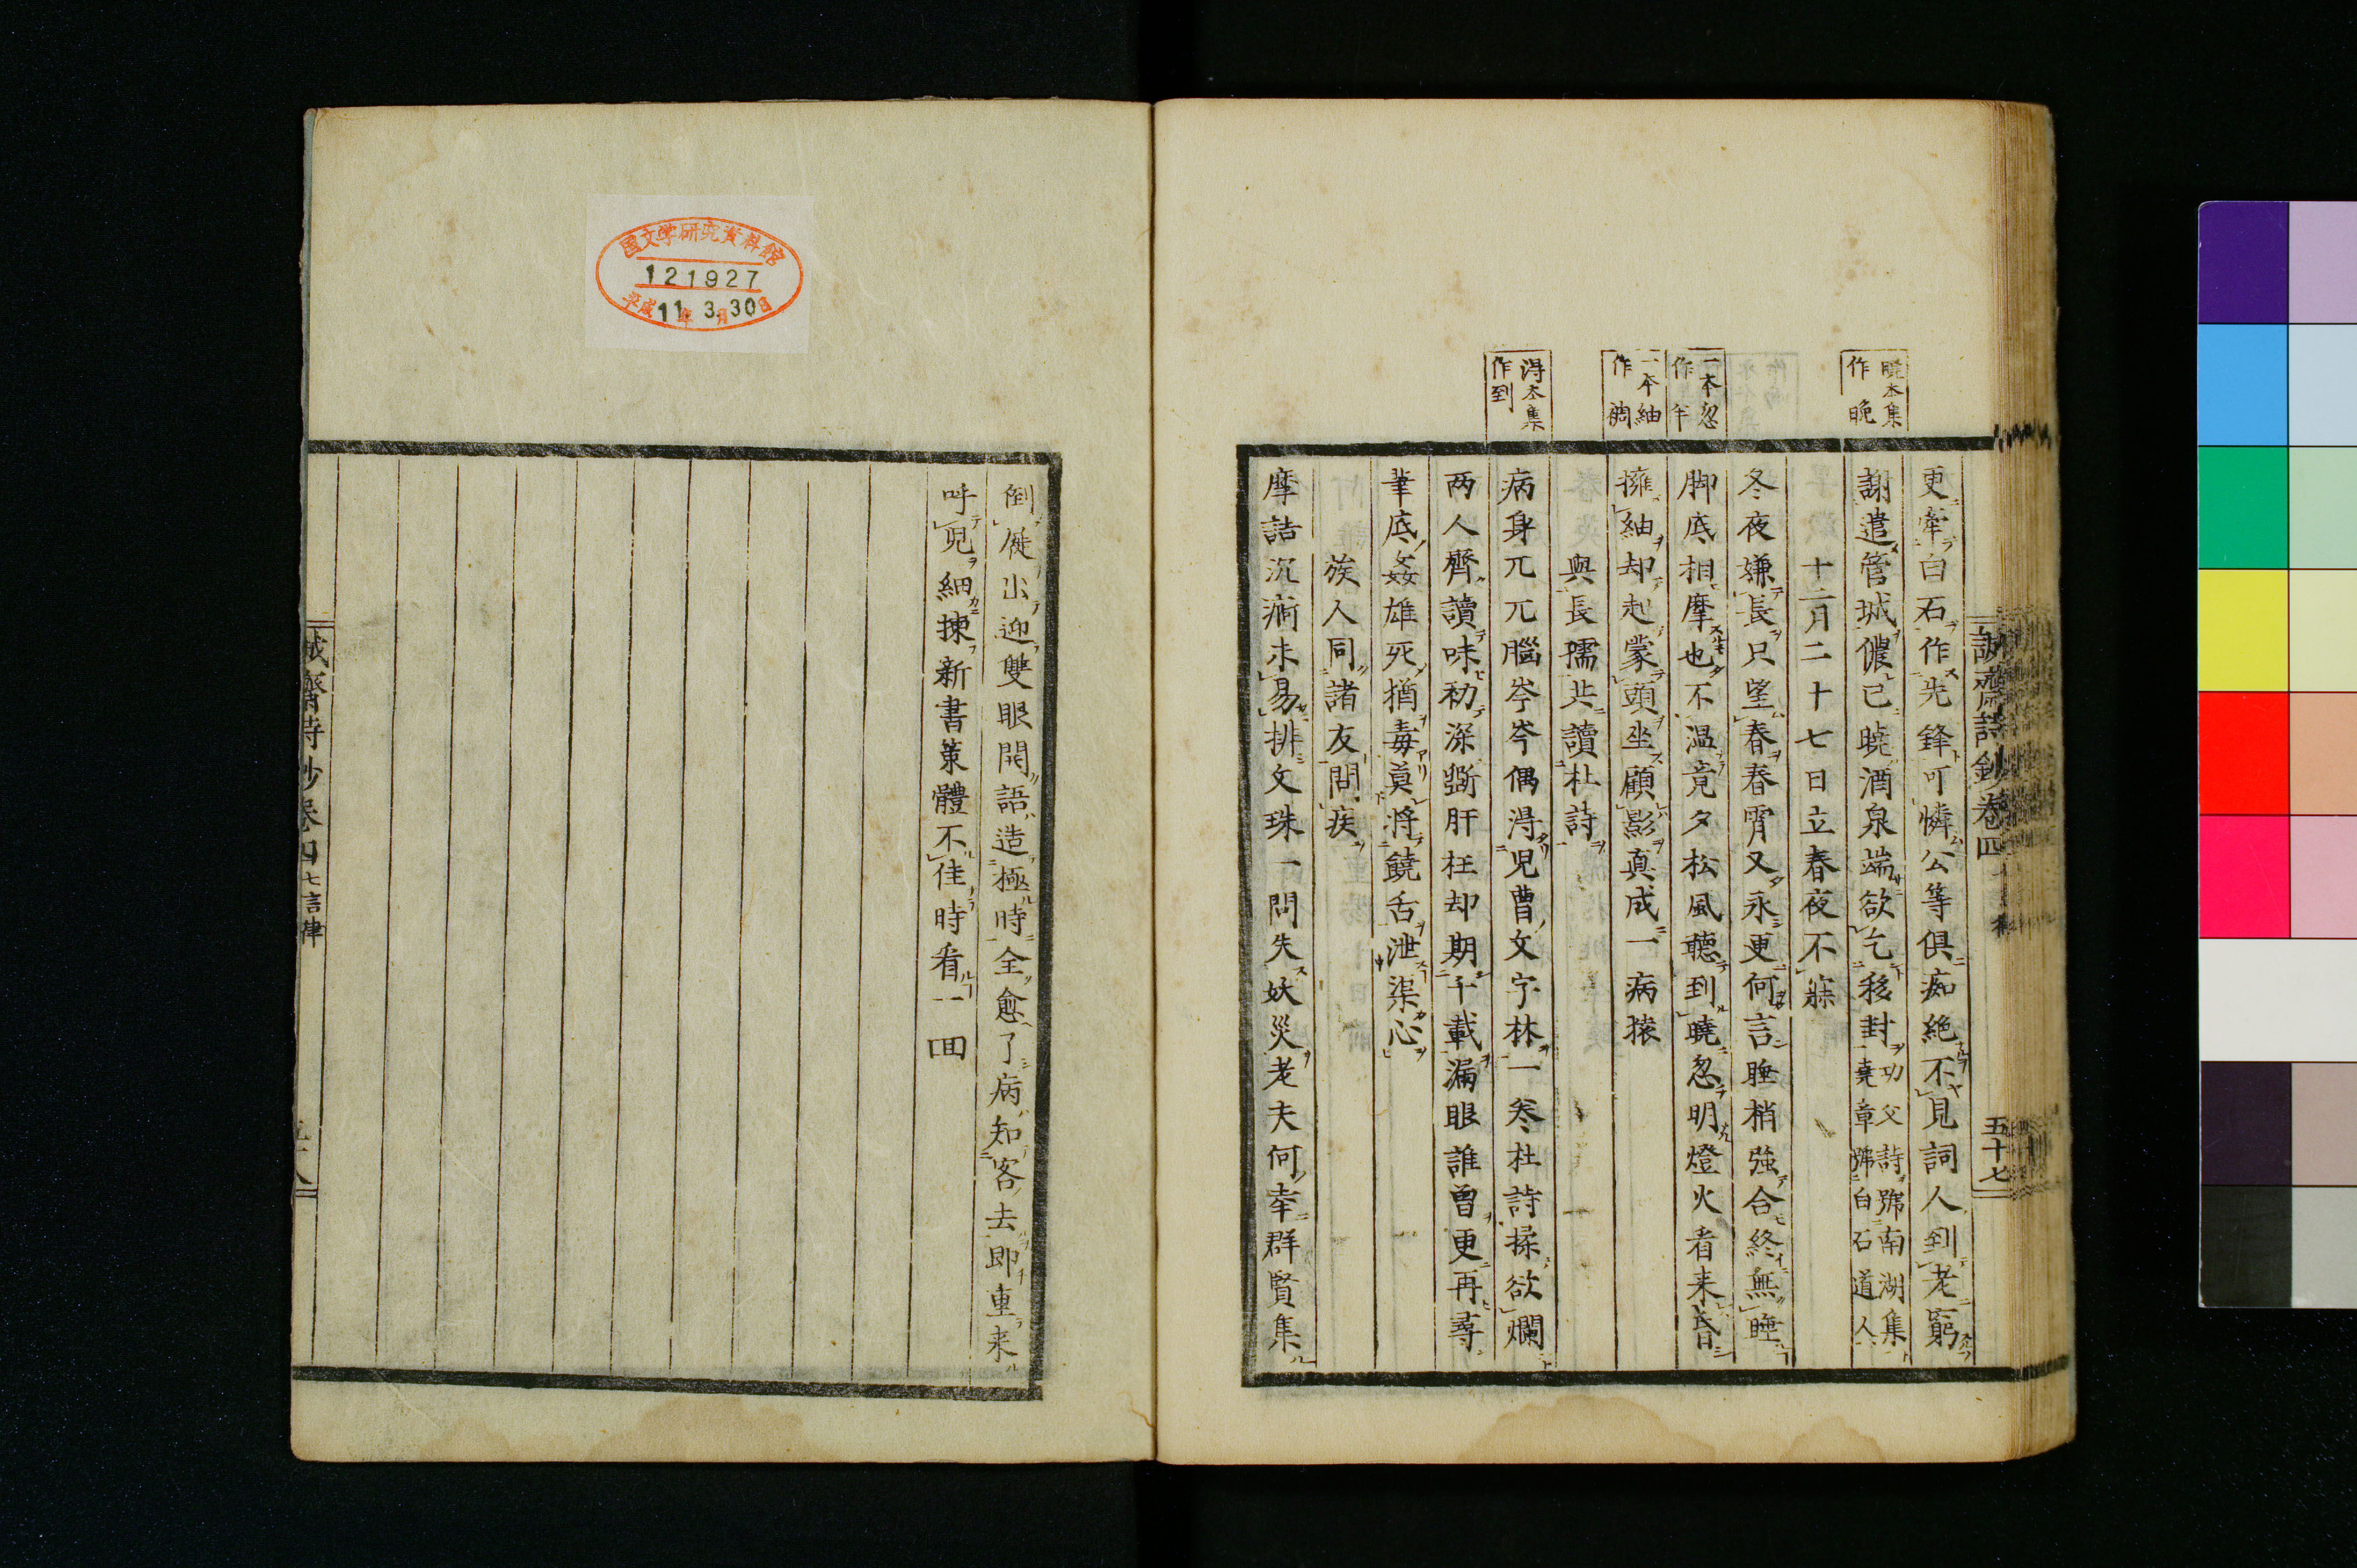 誠齋詩鈔卷四
五十七
曉本集
作晚
一本忽
作乍
一本紬
作裯
得本集
作到
更牽白石作先鋒可憐公等俱痴絶不見詞人到老窮
謝遣管城儂已曉酒泉端欲乞移封
功父詩號南湖集
堯章號白石道人
十二月二十七日立春夜不寐
冬夜嫌長只望春春宵又永更何言睡梢強合終無睡
脚底相摩也不温竟夕松風聽到曉忽明燈火看来昏
擁紬却起蒙頭坐顧影真成一病猿
與長孺共讀杜詩
病身兀兀腦岑岑偶得兒曹文字林一卷杜詩揉欲爛
两人齊讀味初深斲肝枉却期千載漏眼誰曾更再尋
筆底姦雄死猶毒莫將饒舌泄渠心
族人同諸友問疾
摩詰沉痾未易排文殊一問失妖災老夫何幸群賢集
倒屣出迎雙眼開語造極時全愈了病知客去即重来
呼兒細揀新書策體不佳時看一囬
誠齋詩鈔卷四 七言律
国文学研究資料館
121927
平成11年3月30日